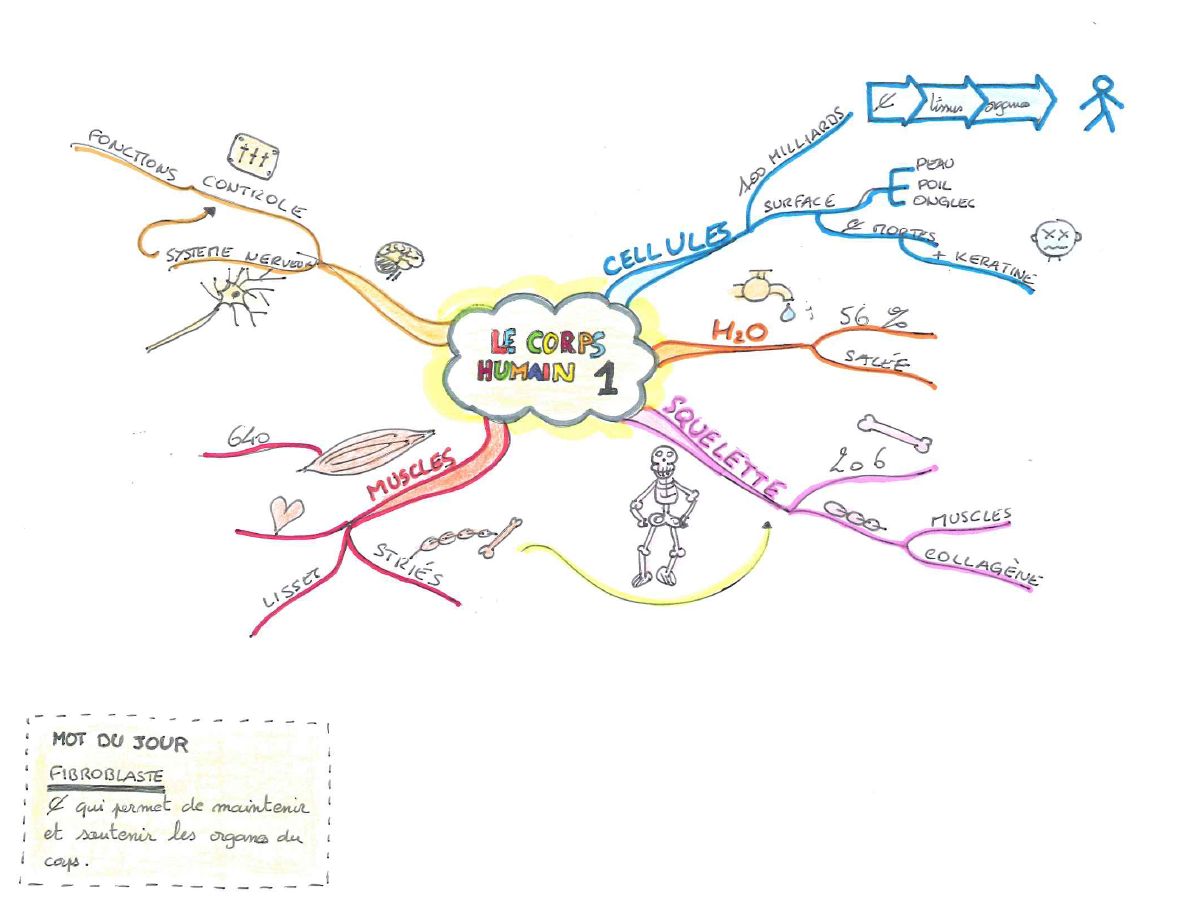 LE CORPS
HUMAIN 1
CELLULES
100 MILLIARDS
₡ tissus organes
SURFACE
PEAU
POIL
ONGLES
₡ MORTES
+ KERATINE
H₂O
56 %
SALÉE
SQUELETTE
206
MUSCLES
COLLAGÈNE
MUSCLES
640
LISSES
STRIÉS
SYSTEME NERVEUX
CONTROLE
FONCTIONS
MOT DU JOUR
FIBROBLASTE
₡ qui permet de maintenir
et soutenir les organes du
corps.